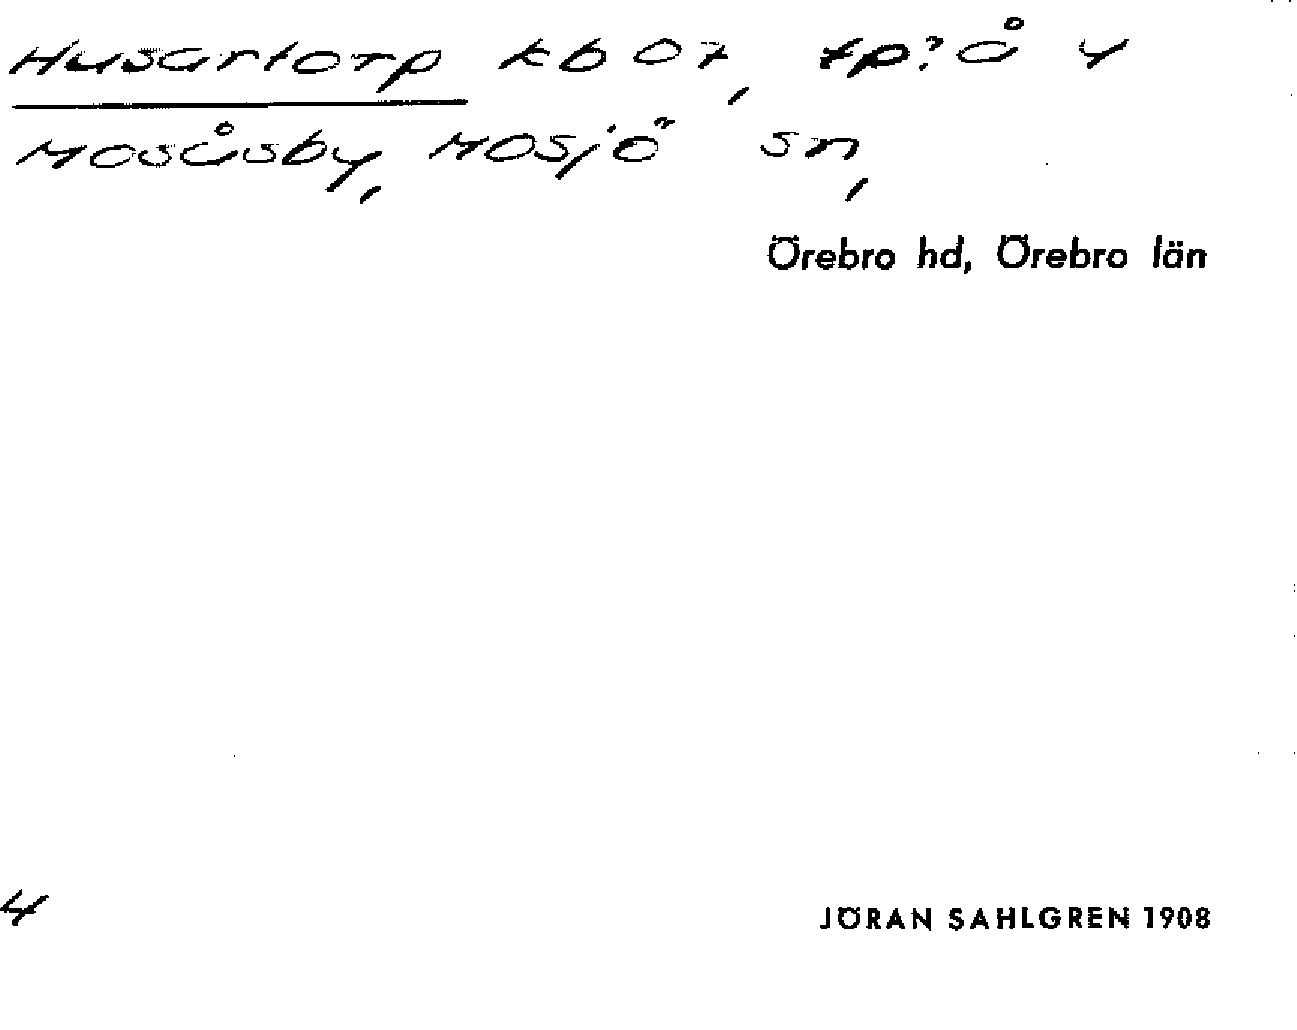 Husartorp kb 07, tp? å 4
Mosåsby, Mosjö sn,
Örebro hd, Örebro län
4
JÖRAN SAHLGREN 1908